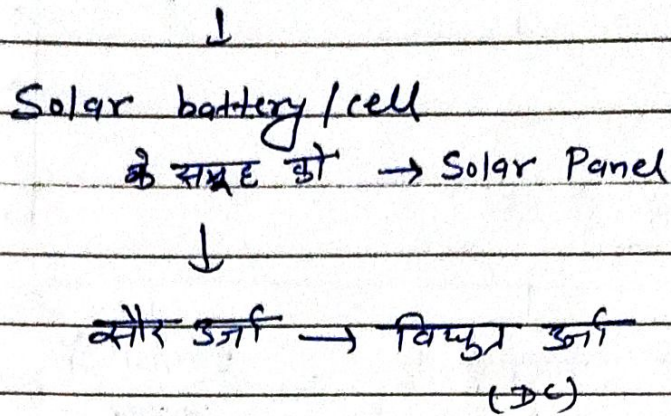 ↓
Solar battery / cell
के समूह को → Solar Panel
↓
सौर उर्जा → विद्युत उर्जा
(DC)